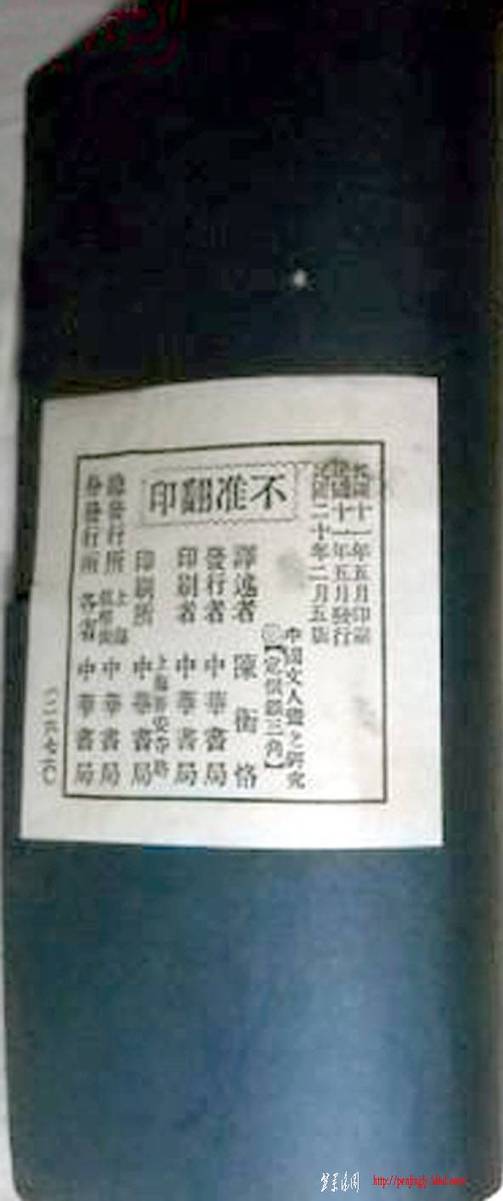 民國十一年五月印刷
民國十一年五月發行
民國二十年二月五版
不准翻印
中國文人畫之研究
【定價銀三角】
譯述者 陳衡恪
發行者 中華書局
印刷者 中華書局
印刷所 上海靜安寺路 中華書局
總發行所 上海棋盤街 中華書局
分發行所 各省 中華書局
(一六七二〇)
http://penjingly.blog.com